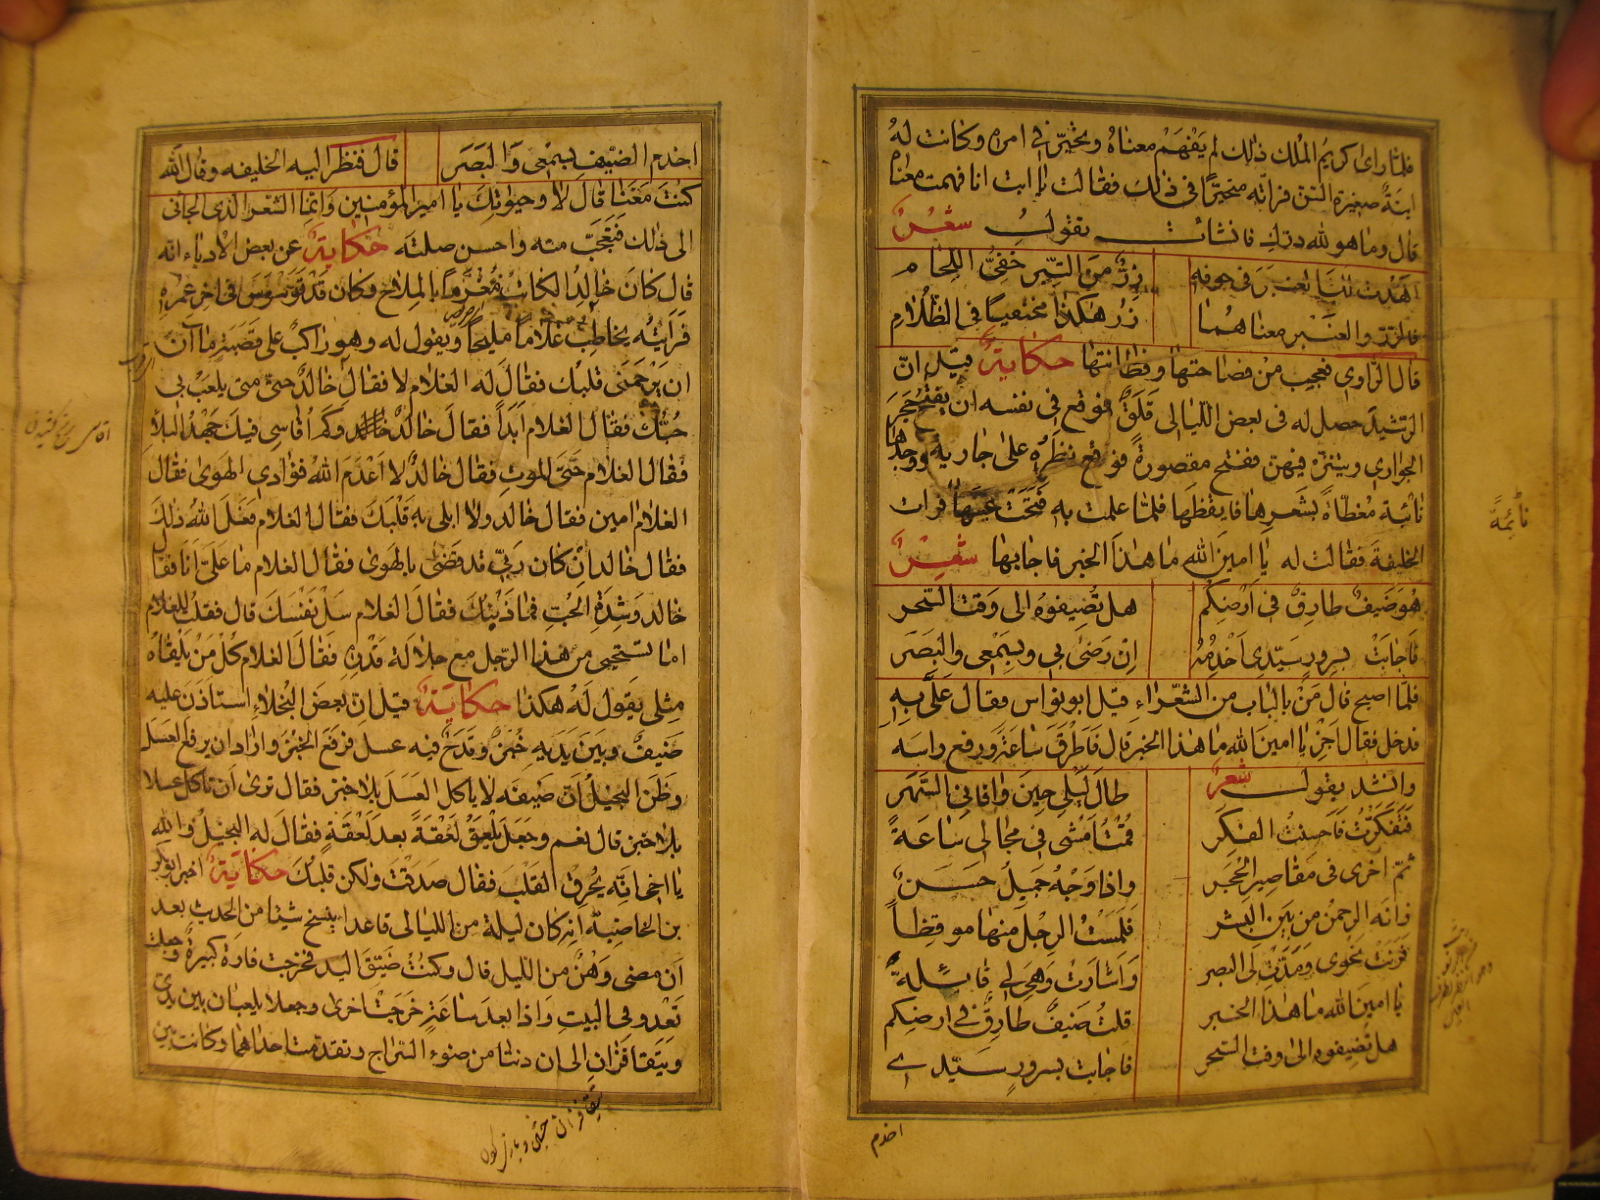 فلمّا رای كريم الملك ذلك لم يَفهَمْ معناهُ وتحيّر فی امره وكانت لهُ
ابنة صغيرة السّن فراته متحيّرًا فی ذلك فقالت يا ابت انا فهمت معناه
قال وما هو لله درّك فانشات يقولُ شعرٌ
اَهْدَت لنا العنبَرَ فی جوفه زِرٌّ مِنَ التِّبرِ خَفِیُّ اللِّحام
فالزّرّ والعنبر معناهُما زُر هٰكذا مختفيًا فی الظّلام
قال الرّاوی فعجِب مِن فصاحتها وفطانتها حكاية قيل انّ
الرّشيد حصل له فی بعض اللّيالی قَلَقٌ فوقع فی نفسه ان يفتح حُجَر
الجواری ويتنزّه فيهنّ ففتح مقصورةً فوقع نظَرُه علی جارية ووجدها
نائمة مُغطّاةً بشعرها فايقظها فلمّا علمت به فَتَحَت عينَها فرات
الخليفةَ فقالت له يا امينَ الله ما هذا الخبر فاجابها شعرٌ
هُوَ ضَيفٌ طارِقٌ فی اَرْضِكُم هل تُضيفوهُ الی وَقت السَّحر
فَاَجابَتْ بسرور سيّدی اَخْدِمُهُ اِن رَضیٰ بی وبسَمْعی والبَصَر
فلمّا اصبح قال مَنْ بالباب من الشّعراءِ قيل ابو نواس فقال علَیَّ بِهِ
فدخل فقال اَجِزْ يا امينَ الله ما هذا الخبر قال فَاَطْرَقَ ساعةً ورفع راسه
وانشد يقولُ شعرٌ طالَ لَيْلی حِينَ وافانی السَّهَر
فَتَفَكَّرْتُ فَاَحسنتُ الفِكَر قُمْتُ اَمْشی فی مجالی ساعَةً
ثمّ اُخری فی مقاصير الحُجَر واذا وَجْهٌ جَميلٌ حَسَنٌ
زانَهُ الرحمنُ من بَين البَشر فَلَمَسْتُ الرِجلَ منها موقِظًا
فَرَنَتْ نحوی ومَدَّت لی البصر وَاَشارَتْ وَهی لی قائلةً
يا امينَ الله ما هذا الخبر قلتُ ضَيفٌ طارِقٌ فی ارضِكُم
هل تُضيفوه الی وقت السّحر فاجابت بسرورٍ سَيّدی
اخدم
نائِمَةً
اخدم الضيف بسَمْعی وَالبَصَر قال فنظر اليه الخليفه وقال اللّٰه
كنتَ مَعَنا قالَ لا وحيوٰتِك يا امير المؤمنين وَانّما الشعر الذی الجانی
الی ذلك فتعَجّب منه واحسن صلتَه حكاية عن بعض الادباء انّه
قال كانَ خالدٌ الكاتب مُغرَمًا بالملاح وكان قد تَوَسْوَسَ فی اخِر عُمره
فرايتُه يخاطب غلامًا مليحًا ويقول له وهو راكبٌ علی قصبَةٍ ما آن
ان يَرْحَمَنی قلبك فقالَ له الغلام لا فقال خالدٌ حتّی متی يلعب بی
حُبُّك فقال الغلام اَبَداً فقال خالدٌ وكم اُقاسی فيك جَهْدَ البلاء
فقال الغلام حتّی الموت فقال خالدٌ لا اَعْدَمَ اللهُ فؤادی الهوی فقال
الغلام امين فقال خالد ولا ابلی به قَلْبَك فقال الغلام فَعَلَ اللهُ ذلك
فقال خالد اِن كان ربّی قد قضٰی بالهوی فقال الغلام ما عَلَیَّ اَنا فقال
خالد وَشِدّةِ الحُبّ فما ذَنْبُكَ فقالَ الغلام سَلْ نَفْسَكَ قال فقلتُ للغلام
اما تستحيی من هذا الرّجل مع جلالة قَدْرِهِ فقالَ الغلام كُلّ مَنْ يَلْقاهُ
مثلی يقول لَهُ هكذا حكايةٌ قيل انّ بعضَ البُخلاءِ استاذَن عليه
ضيفٌ وبين يَدَيهِ خُبزٌ وقدحٌ فيه عسل فرفَع الخبزَ وارادَ ان يرفع العسل
وظَنّ البخيلُ اَنّ ضيفه لا ياكل العَسَل بلا خبز فقال تریٰ اَن تاكل عسلا
بلا خبز قال نعم وجعَلَ يَلْعَقُ لَعْقَةً بعد لَعْقَةٍ فقال له البخيلُ واللهِ
يا اخی انّه يُحرق القَلب فقال صَدقْتَ ولكن قلبَكَ حكايَةٌ اخبر ابو بكر
بن الخاضبة انّه كان ليلة من الليالی قاعدا ينسخ شيئا من الحديث بعد
اَن مضی وَهْنٌ من اللّيل قال وكنتُ ضيّقَ اليد فخرجت فارة كبيرةٌ وجعلت
تَعْدو فی البيت وَاذا بعدَ ساعَةٍ خَرَجَتْ اخری وجعلا يلعبان بين يدی
ويتقافزانِ الی ان دنتا من ضوء السّراج وتقدّمت احداهما وكانت بين